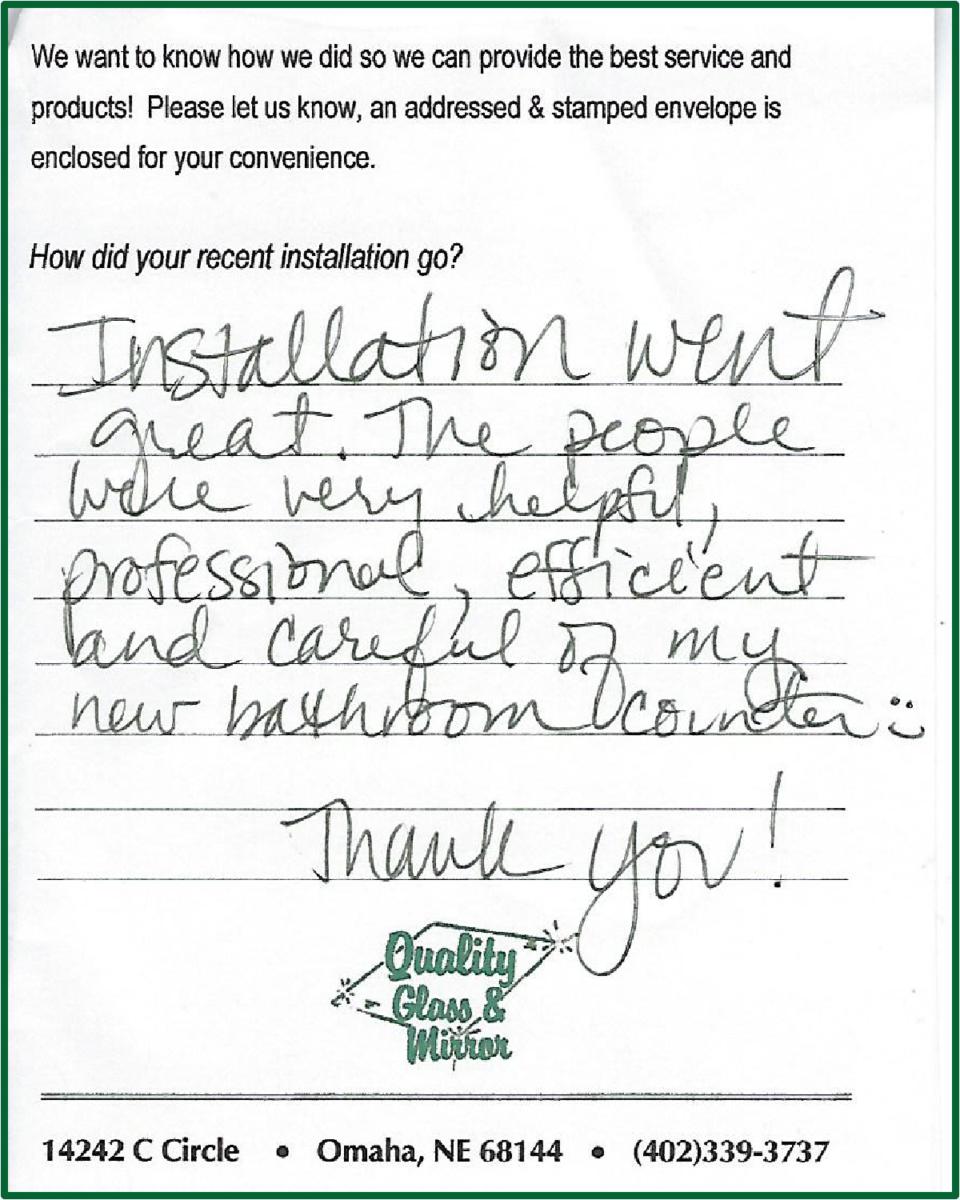 We want to know how we did so we can provide the best service and
products! Please let us know, an addressed & stamped envelope is
enclosed for your convenience.
How did your recent installation go?
Installation went
great. The people
were very helpful,
professional, efficient
and careful of my
new bathroom counter :)
Thank you!
Quality
Glass &
Mirror
14242 C Circle • Omaha, NE 68144 • (402)339-3737